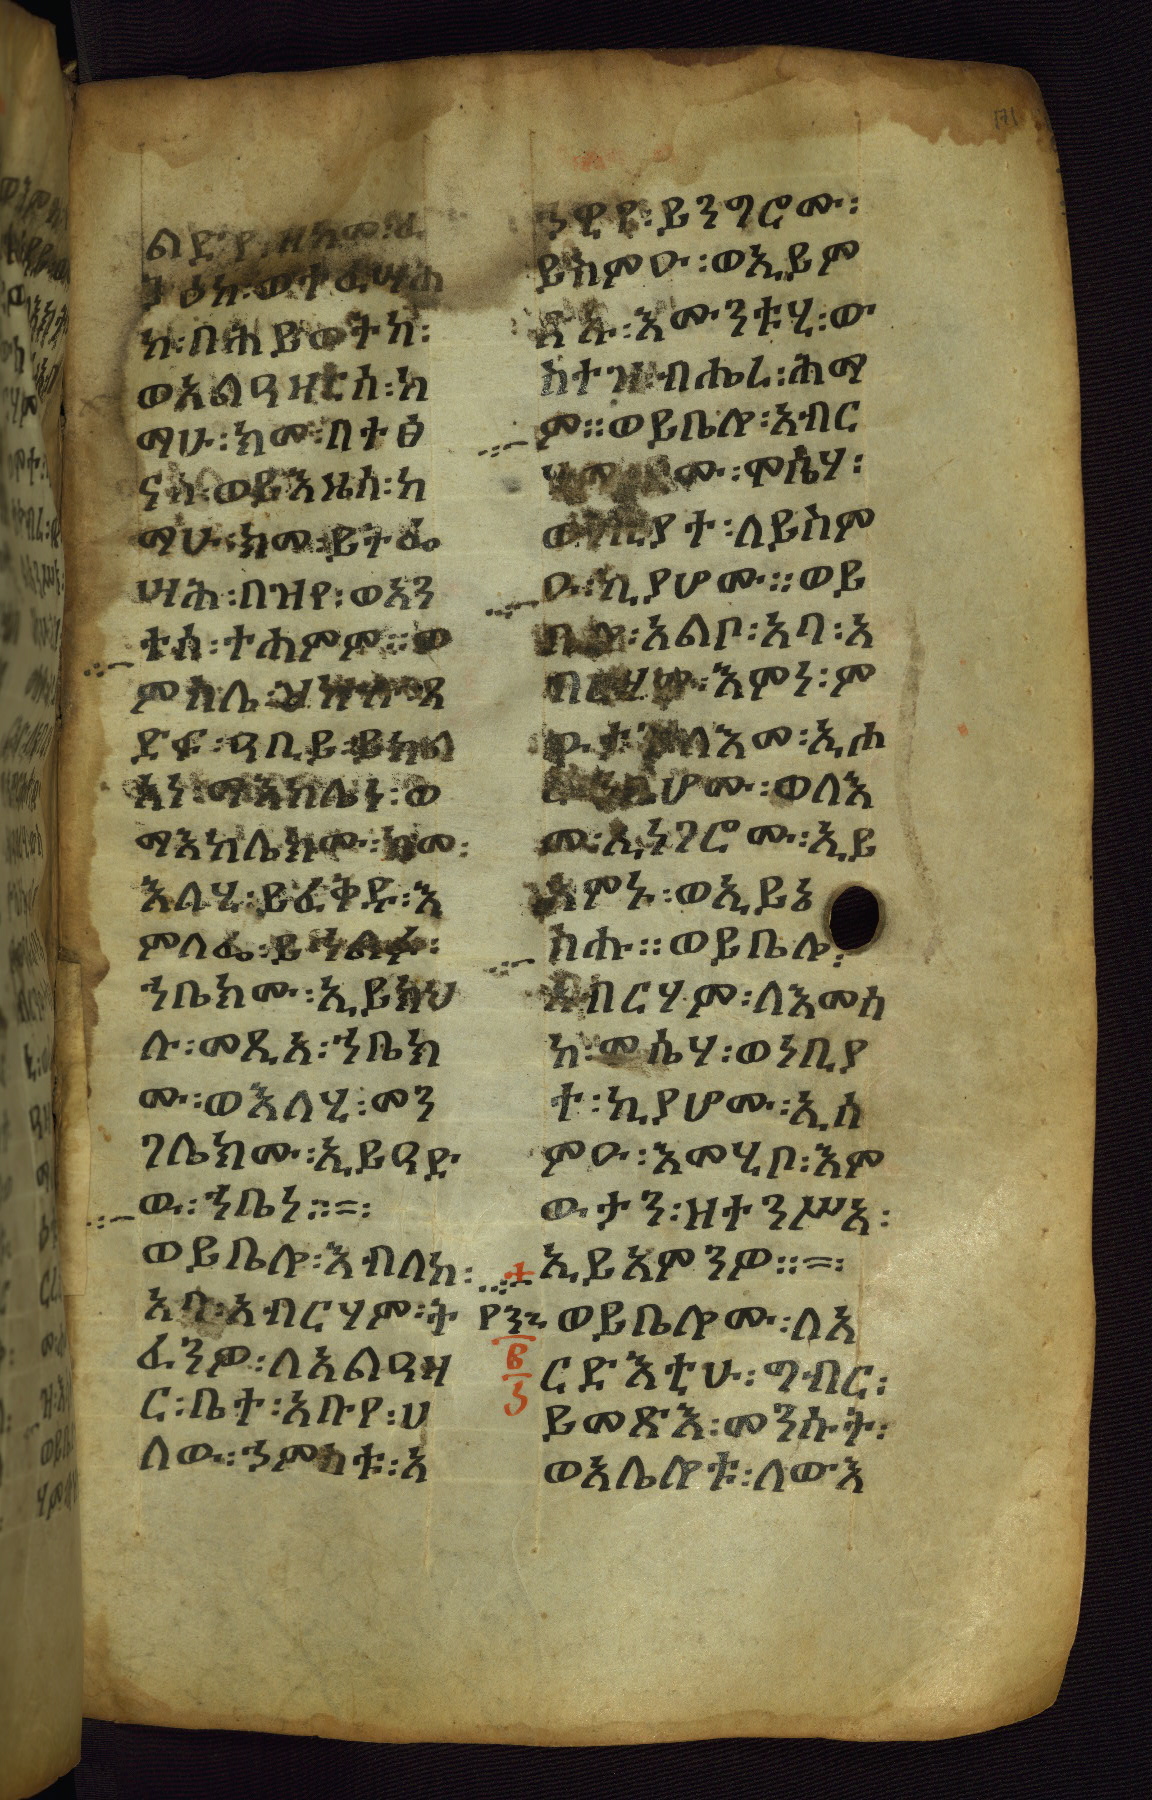 ልድየ፡ዘከመ፡
ከ፡በሕይወትከ፡
ወአልዓዛርሰ፡ከ
ማሁ፡ከመ፡በተፅ
ናሰ፡ወይእዜሰ፡ከ
ማሁ፡ከመ፡ይትፌ
ሣሕ፡በዝየ፡ወአን
ተሰ፡ተሐምም።ወ
ምስሌ፡ዝኵሉ፡ዓ
ድፍ፡ዓቢይ፡ይክል
አነ፡ማእከሌነ፡ወ
ማእከሌክሙ፡ከመ፡
እለሂ፡ይፈቅዱ፡እ
ምለፌ፡ይኅልፉ፡
ኀቤክሙ፡ኢይክህ
ሉ፡መጺአ፡ኀቤክ
ሙ፡ወእለሂ፡መን
ገሌክሙ፡ኢይዓድ
ው፡ኀቤነ።=፡
ወይቤሎ፡እብለከ፡
አባ፡አብርሃም፡ት
ፈንዎ፡ለአልዓዛ
ር፡ቤተ፡አቡየ፡ሀ
ለው፡ኀምስቱ፡አ
ኀዊየ፡ይንግሮሙ፡
ይስምዑ፡ወኢይም
ጽኡ፡እሙንቱሂ፡ው
ስተዝ፡ብሔረ፡ሕማ
ም።ወይቤሎ፡አብር
ሃም፡ቦሙ፡ሙሴሃ፡
ወነቢያተ፡ለይስም
ዑ፡ኪያሆሙ።ወይ
ቤሎ፡አልቦ፡አባ፡አ
ብርሃም፡እምነ፡ም
ውታን፡ለእመ፡ኢሐ
ረ፡ኀቤሆሙ፡ወለእ
መ፡ኢነገሮሙ፡ኢይ
አምኑ፡ወኢይኔ
ስሑ።ወይቤሎ፡
አብርሃም፡ለእመሰ
ከ፡መሴሃ፡ወነቢያ
ተ፡ኪያሆሙ፡ኢሰ
ምዑ፡እመሂቦ፡እም
ውታን፡ዘተንሥአ፡
ኢይአምንዎ።=፡
ወይቤሎሙ፡ለአ
ርድእቲሁ፡ግብር፡
ይመጽእ፡መንሱት፡
ወአሌሎቱ፡ለውእ